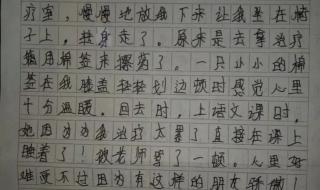 疗室，慢慢地放我下来让我坐在椅
子上，转身走了。原来是去拿治疗
用棉签来擦药了。一只小小的棉
签在我膝盖轻轻划边顿时感觉心里
十分温暖。回去时，上语文课时，
她因为为我治疗太累了直接在课上
睡着了！被老师骂了一顿。心里好
难受不过因为有这样的朋友骄傲！